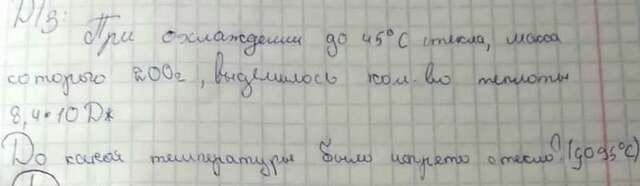 D/З:
При охлаждении до 45°С стекла, масса
которого 200г, выделилось кол-во теплоты
8,4•10 Дж
До какой температуры было нагрето стекло? (до 95°С)